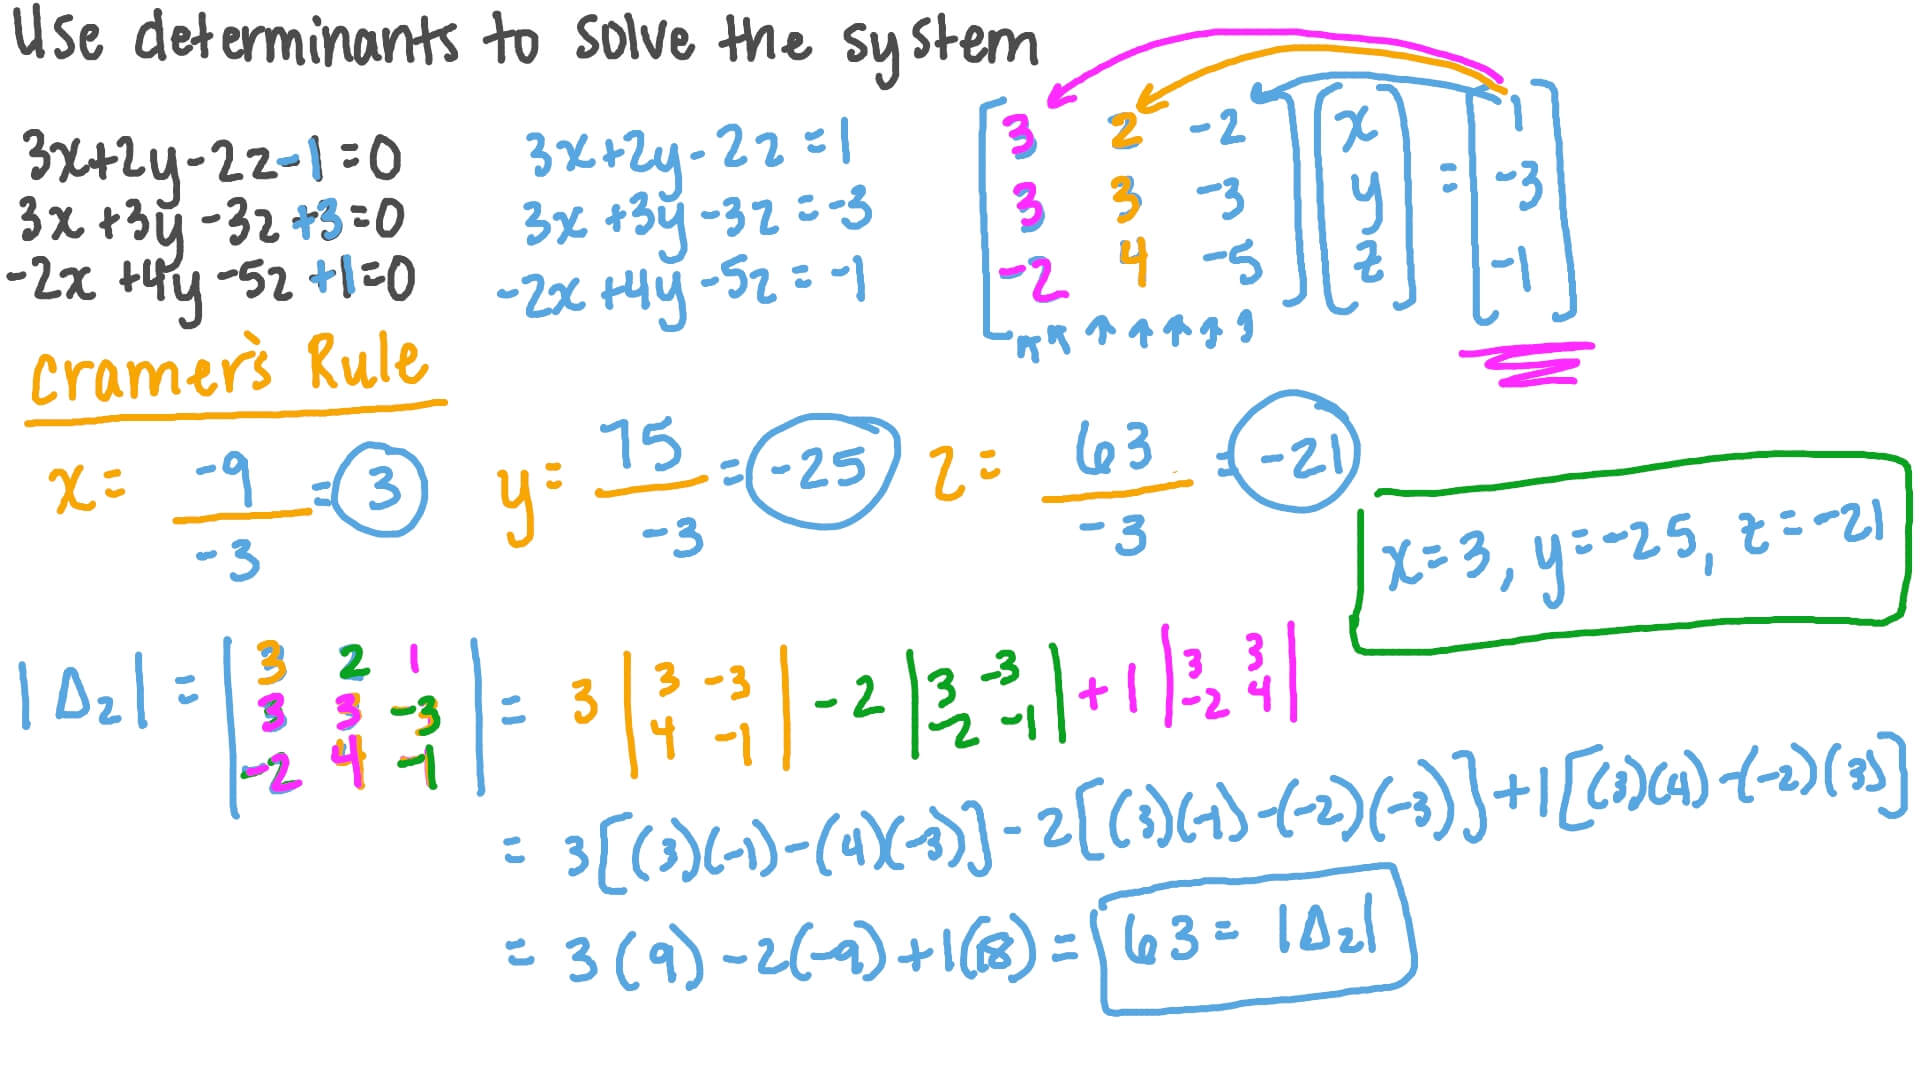 Use determinants to solve the system
3x+2y-2z-1=0
3x+3y-3z+3=0
-2x+4y-5z+1=0
3x+2y-2z=1
3x+3y-3z=-3
-2x+4y-5z=-1
[3 2 -2] [x] = [1]
[3 3 -3] [y] [-3]
[-2 4 -5] [z] [-1]
Cramer's Rule
x= -9/-3 = 3
y= 75/-3 = -25
z= 63/-3 = -21
x=3, y=-25, z=-21
|Δz| = |3 2 1; 3 3 -3; -2 4 -1| = 3|3 -3; 4 -1| -2|3 -3; -2 -1| +1|3 3; -2 4|
= 3[(3)(-1)-(4)(-3)]-2[(3)(-1)-(-2)(-3)]+1[(3)(4)-(-2)(3)]
= 3(9)-2(-9)+1(18)= 63=|Δz|